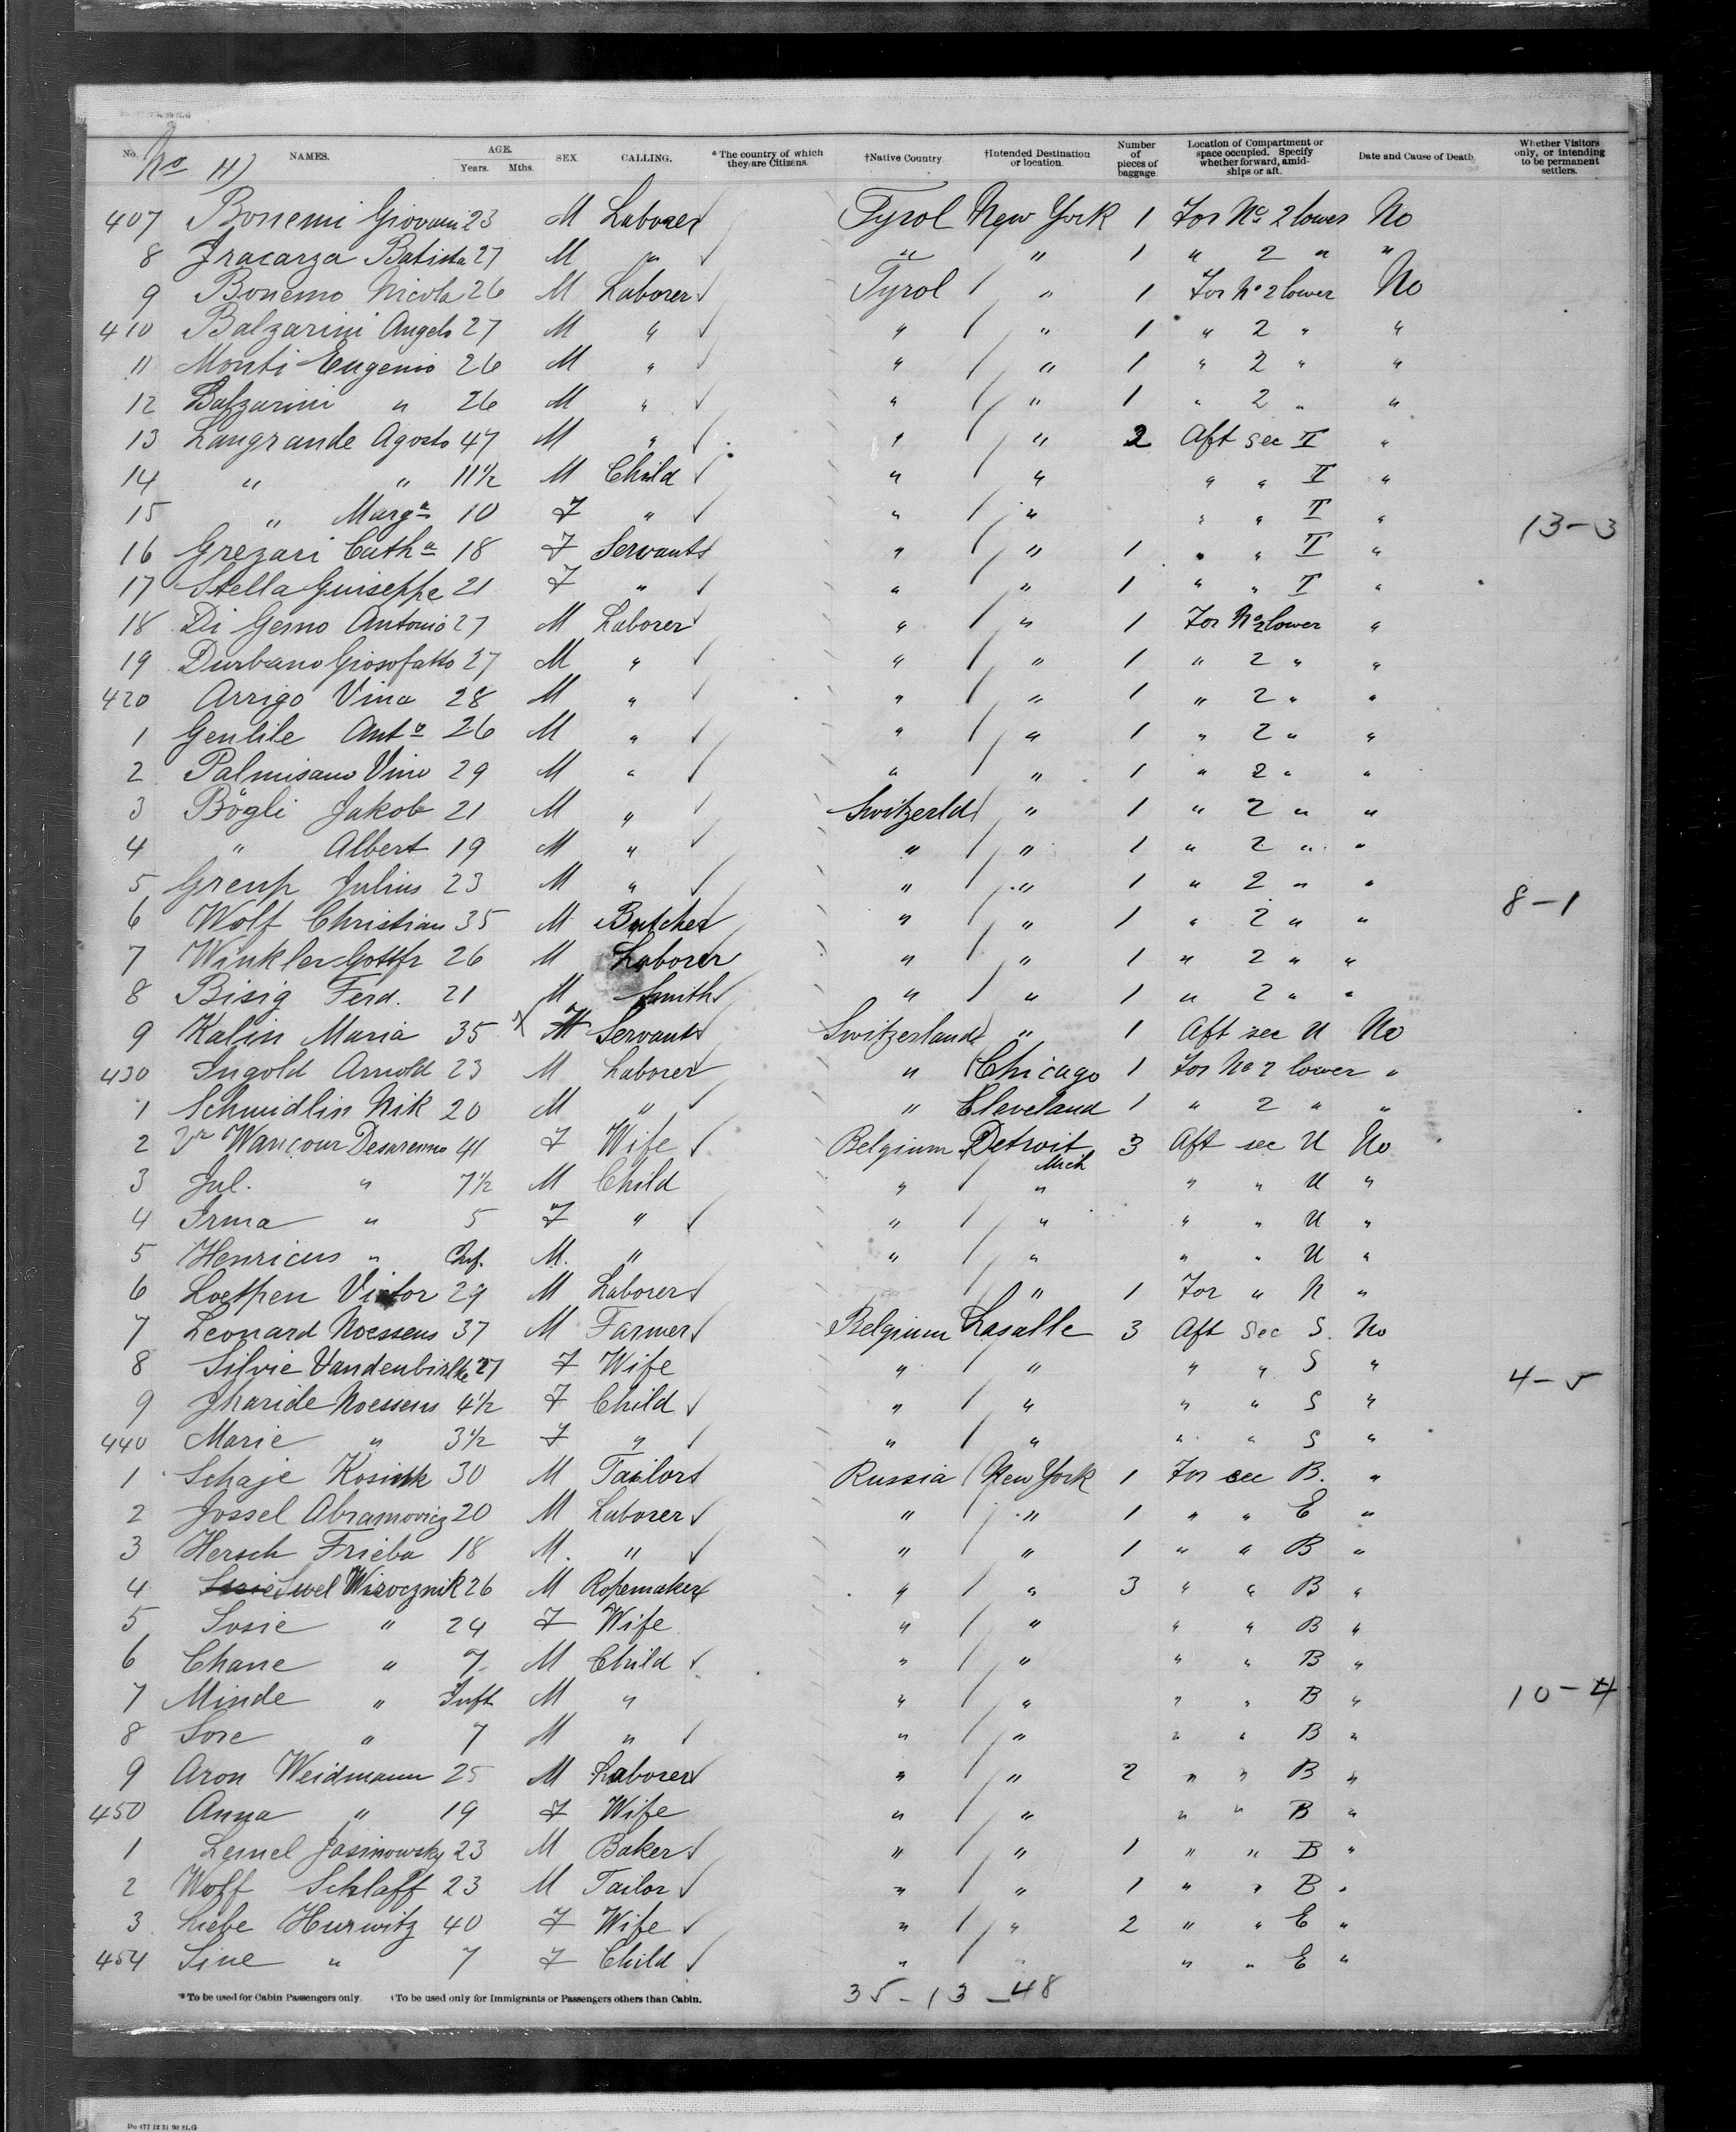 No. NAMES. AGE. Years. Mths. SEX CALLING. *The country of which they are Citizens. †Native Country †Intended Destination or location. Number of pieces of baggage. Location of Compartment or space occupied. Specify whether forward, amidships or aft. Date and Cause of Death Whether Visitors only, or intending to be permanent settlers.
No 11)
407 Bonemi Giovani 23 M Laborer Tyrol New York 1 For No 2 lower No
8 Fracarza Batista 27 M " " " 1 " 2 " "
9 Bonemo Nicola 26 M Laborer Tyrol " 1 For No 2 lower No
410 Balzarini Angelo 27 M " " " 1 " 2 " "
11 Monti Eugenio 26 M " " " 1 " 2 " "
12 Balzarini " 26 M " " " 1 " 2 " "
13 Langrande Agosto 47 M " " " 2 Aft sec T "
14 " " 11½ M Child " " " " T "
15 " Marga 10 F " " " " " T "
13-3
16 Grezari Catha 18 F Servant " " 1 " " T "
17 Stella Guiseppe 21 F " " " 1 " " T "
18 Di Gemo Antonio 27 M Laborer " " 1 For No 2 lower "
19 Durbano Giosofatto 27 M " " " 1 " 2 " "
420 Arrigo Vina 28 M " " " 1 " 2 " "
1 Gentile Anto 26 M " " " 1 " 2 " "
2 Palmisano Vino 29 M " " " 1 " 2 " "
3 Bögli Jakob 21 M " Switzerld " 1 " 2 " "
4 " Albert 19 M " " " 1 " 2 " "
5 Greup Julius 23 M " " " 1 " 2 " "
8-1
6 Wolf Christian 35 M Butcher " " 1 " 2 " "
7 Winkler Gottfr 26 M Laborer " " 1 " 2 " "
8 Bisig Ferd. 21 M Smith " " 1 " 2 " "
9 Kalin Maria 35 F Servant Switzerland " 1 Aft sec U No
430 Ingold Arnold 23 M Laborer " Chicago 1 For No 2 lower "
1 Schmidlin Nik 20 M " " Cleveland 1 " 2 " "
2 Wancour 41 F Wife Belgium Detroit Mich 3 Aft sec U No
3 Jul. " 7½ M Child " " " " U "
4 Irma " 5 F " " " " " U "
5 Henricus " Inf. M. " " " " " U "
6 Loetpen Victor 29 M Laborer " 1 For " N "
7 Leonard Noessens 37 M Farmer Belgium Lasalle 3 Aft Sec S. No
8 Silvie 27 F Wife " " " " S "
4-5
9 Noessens 4½ F Child " " " " S "
440 Marie " 3½ F " " " " " S "
1 Schaje Kosinsk 30 M Tailor Russia New York 1 For sec B. "
2 Jossel Abramovicz 20 M Laborer " " 1 " " E "
3 Hersch Frieba 18 M. " " " 1 " " B "
4 Swel Wirocznik 26 M Ropemaker " " 3 " " B "
5 Sosie " 24 F Wife " " " " B "
6 Chane " 7 M Child " " " " B "
7 Minde " Inft M " " " " " B "
10-4
8 Sore " 7 M " " " " " B "
9 Aron Weidmann 25 M Laborer " " 2 " " B "
450 Anna " 19 F Wife " " " " B "
1 Lemel Jasinowsky 23 M Baker " " 1 " " B "
2 Wolf Schlaff 23 M Tailor " " 1 " " B "
3 Liebe Hurwitz 40 F Wife " " 2 " " E "
454 Sine " 7 F Child " " " E "
*To be used for Cabin Passengers only. †To be used only for Immigrants or Passengers others than Cabin.
35-13-48